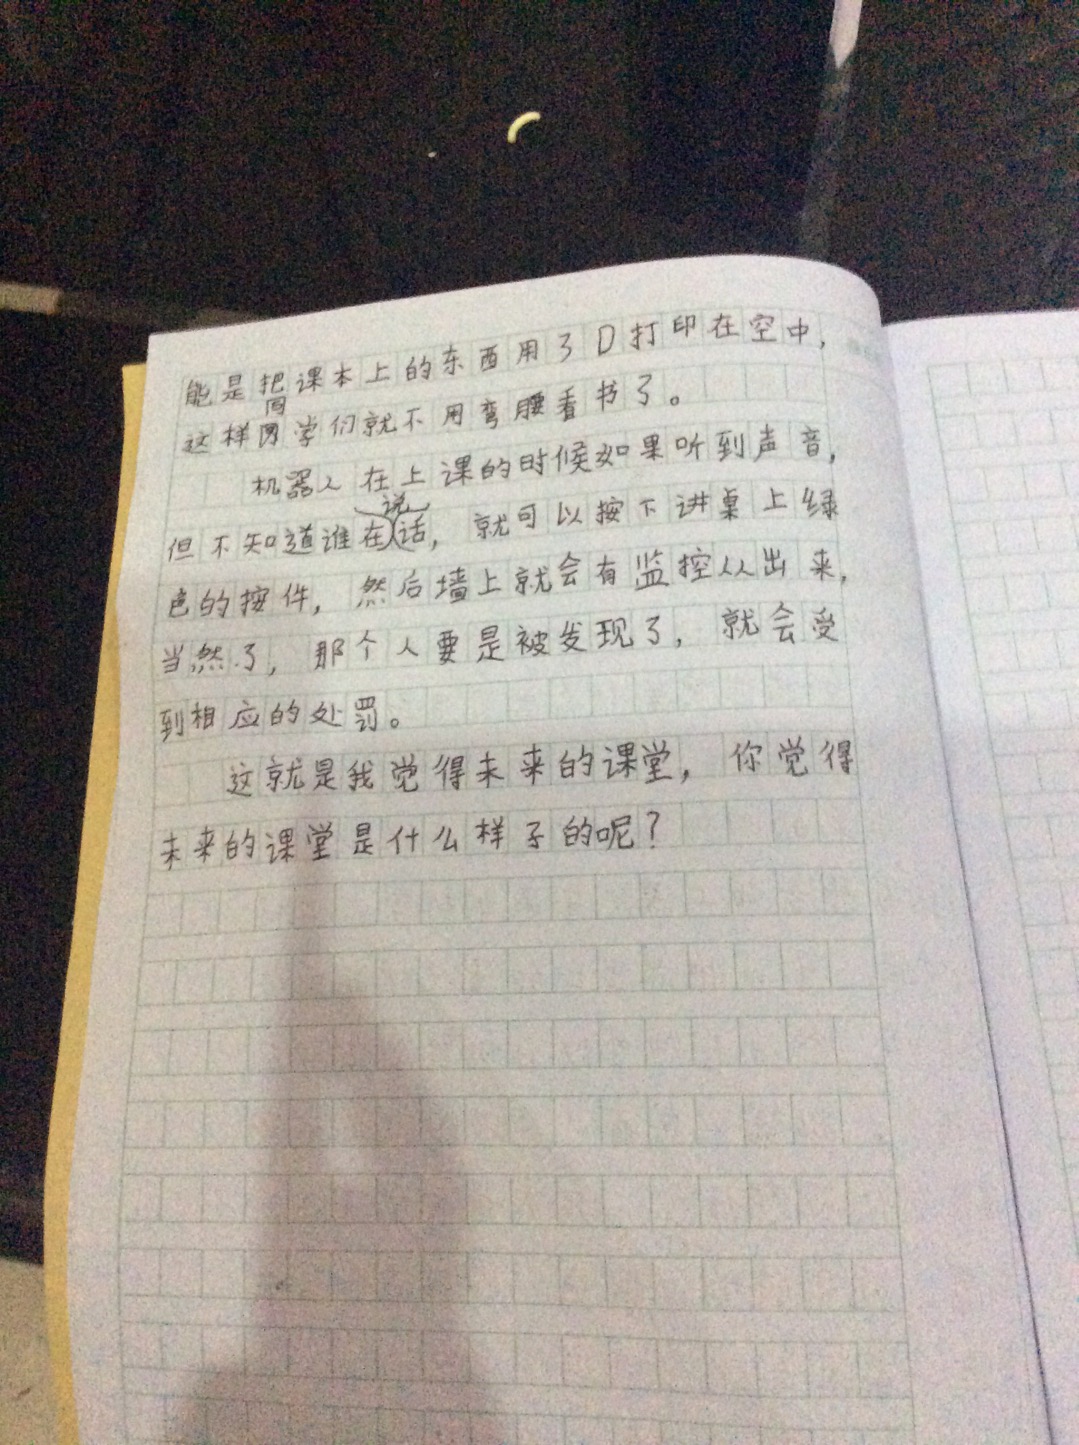 能是把课本上的东西用3D打印在空中，
这样同学们就不用弯腰看书了。
机器人在上课的时候如果听到声音，
但不知道谁在说话，就可以按下讲桌上绿
色的按件，然后墙上就会有监控从出来，
当然了，那个人要是被发现了，就会受
到相应的处罚。
这就是我觉得未来的课堂，你觉得
未来的课堂是什么样子的呢？